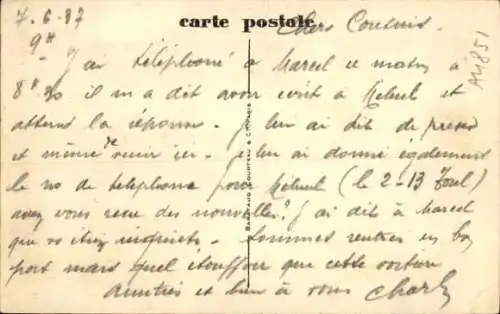 7.6.37
carte postale
Chers Cousins.
9H
J'ai téléphoné a Marcel ce matin à
8H30 il m a dit avoir écrit a Helmut et
attend la réponse. Je lui ai dit de presser
et même de venir ici. Je lui ai donné également
le no de telephone pour (le 2-13 Toul)
avez vous recu des nouvelles? J ai dit à Marcel
que vous étiez inquiets. Sommes rentrés en bon
port mais quel étouffoir que cette voiture
Amitiés et bien à vous Charly
AU851
BARTAUD